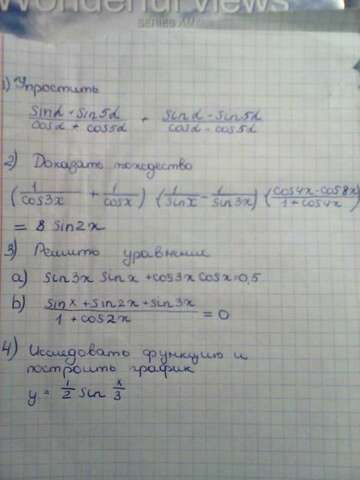 Wonderful views
series AMBA
1) Упростить
(sinα - sin5α)/(cosα + cos5α) + (sinα - sin5α)/(cosα - cos5α)
2) Доказать тождество
(1/cos3x + 1/cosx) (1/sinx - 1/sin3x) (cos4x - cos8x)/(1 + cos4x)
= 8 sin2x
3) Решить уравнение
a) sin3x sinx + cos3x cosx = 0,5
b) (sinx + sin2x + sin3x)/(1 + cos2x) = 0
4) Исследовать функцию и
построить график
y = 1/2 sin x/3